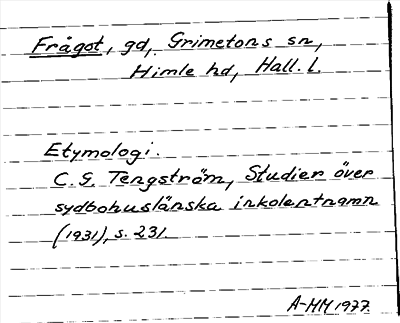 Frågot, gd, Grimetons sn,
Himle hd, Hall. l.
Etymologi.
C. G. Tengström, Studier över
sydbohuslänska inkolentnamn
(1931), s. 231.
A-MM 1977.